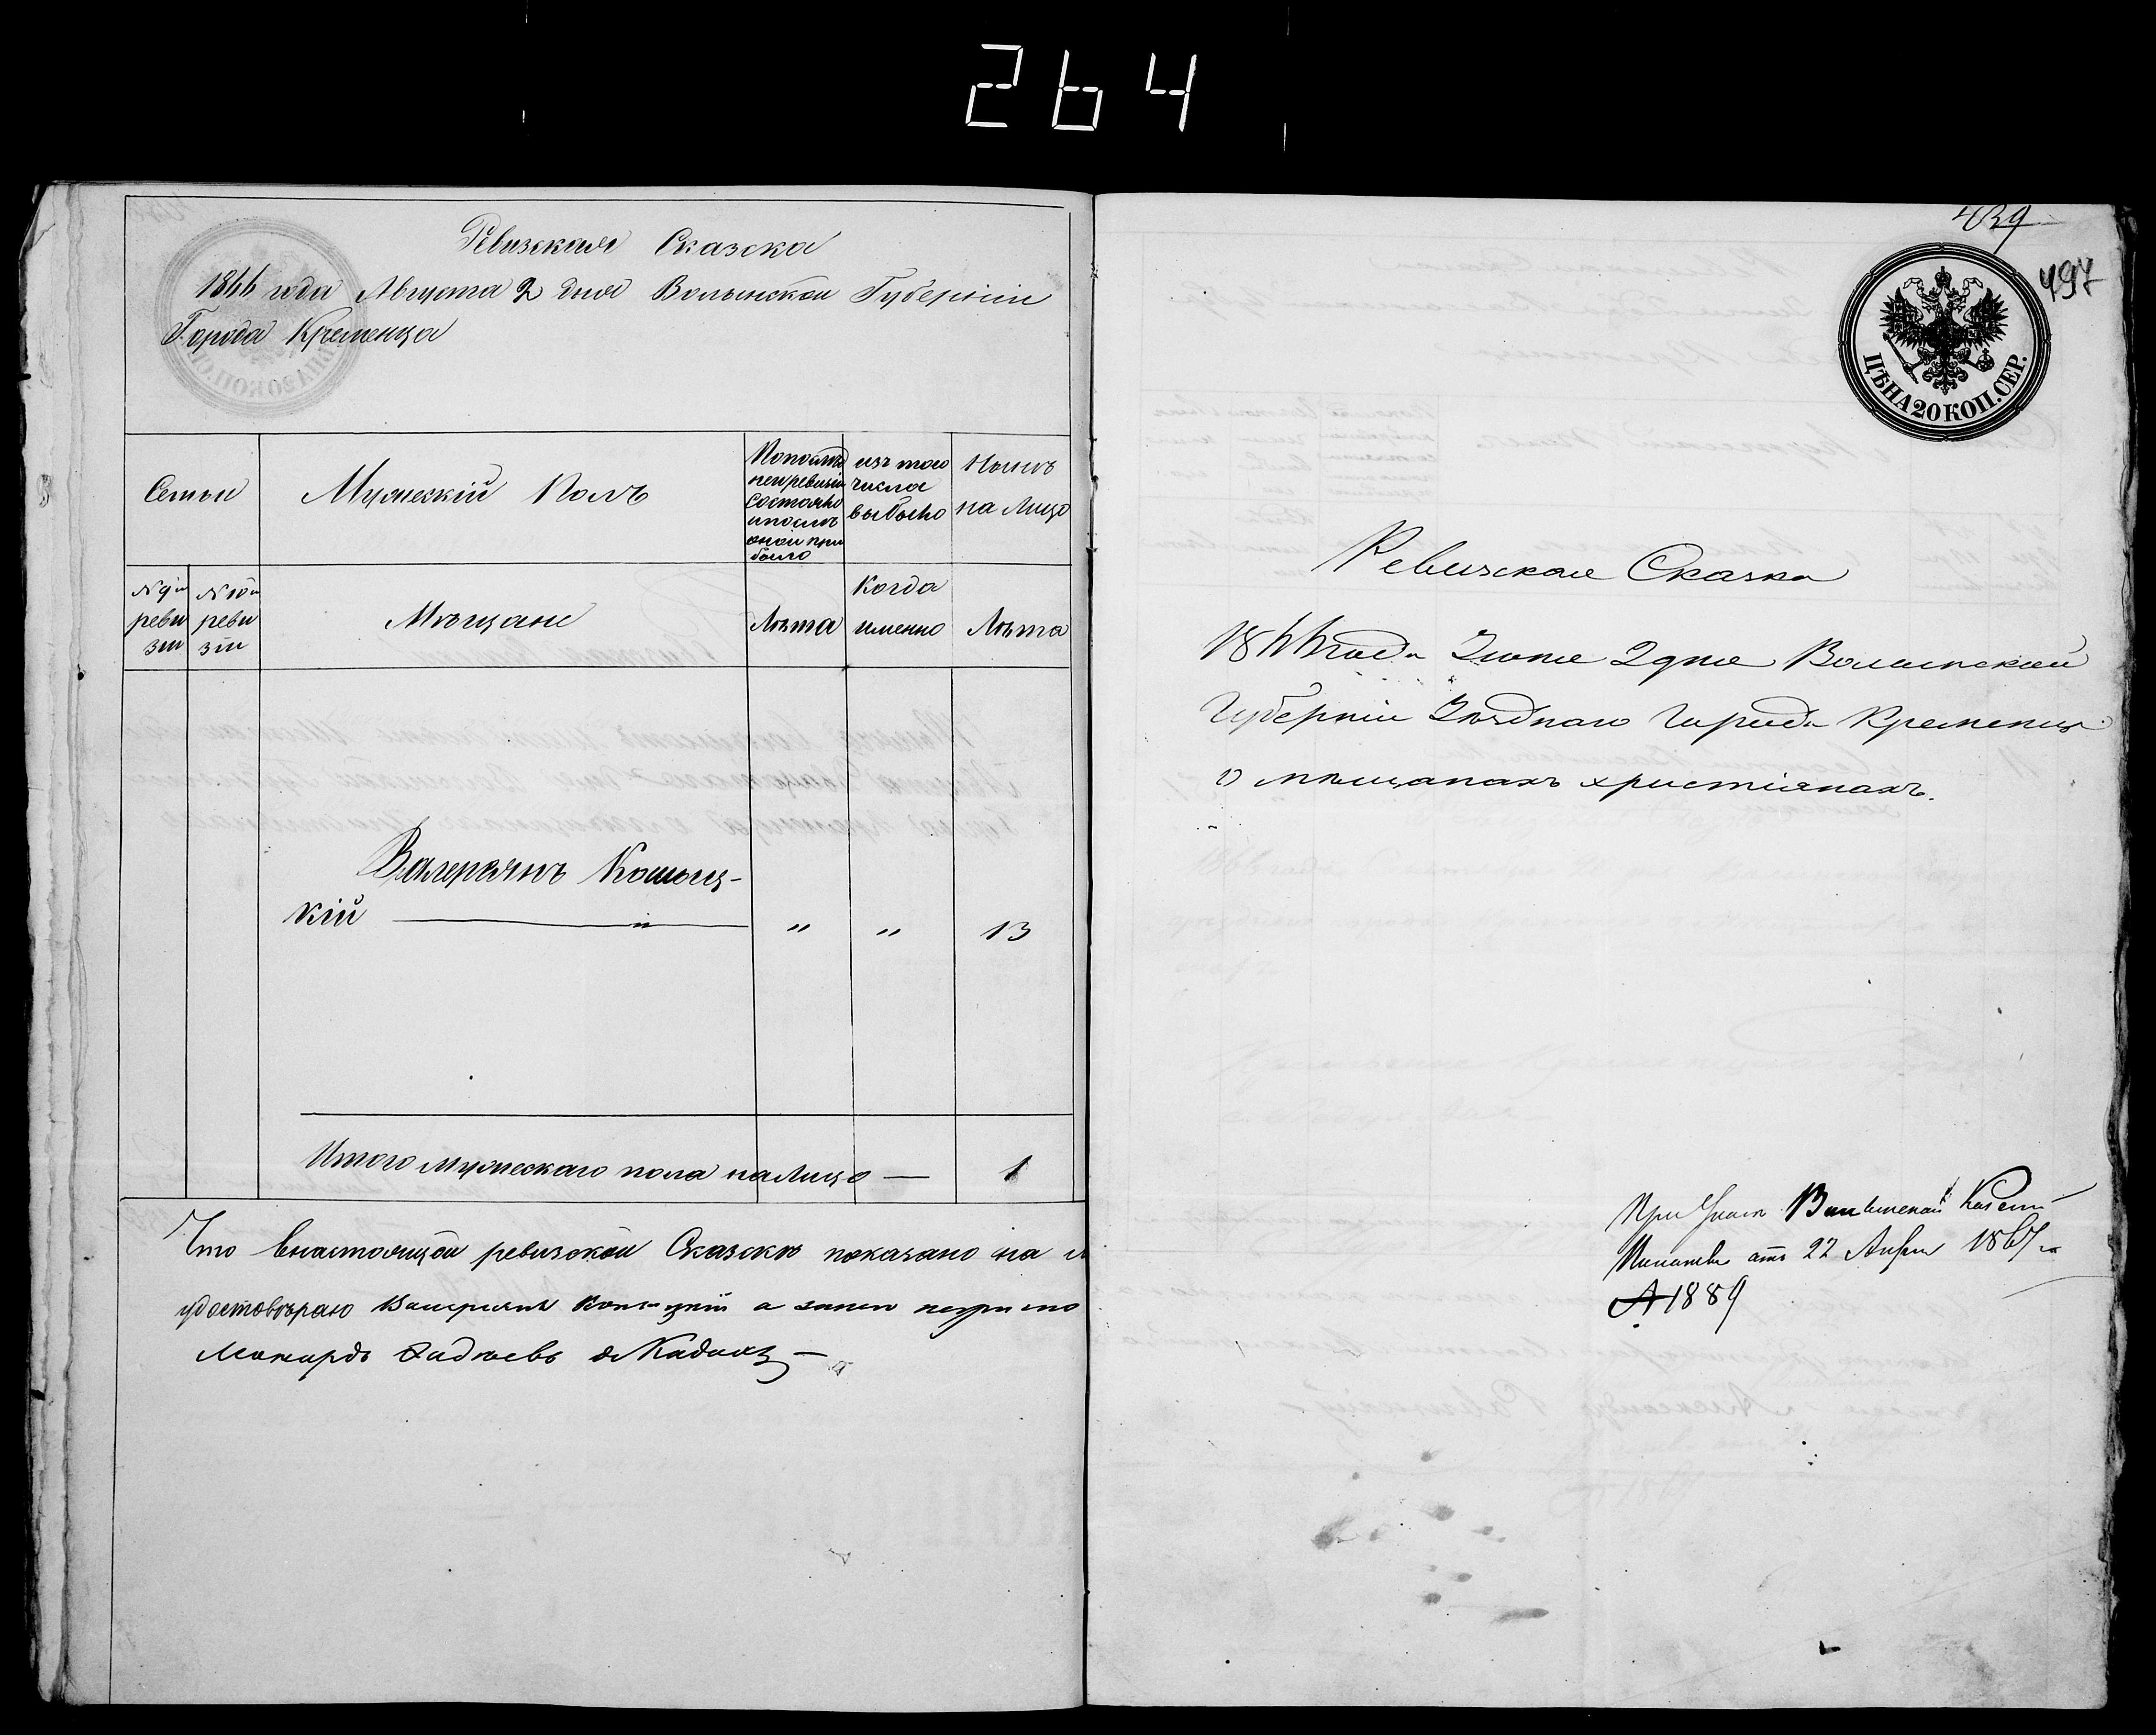 264
Ревизская Сказка
1866 года Августа 2 дня Волынской Губерніи
Города Кременца
Семьи
Мужескій Полъ
По послѣд
ней ревизіи
состояло
и послѣ
оной при
было
изъ того
числа
выбыло
Нынѣ
на Лицо
№ 9й
реви
зіи
№ 10й
реви
зіи
Мѣщане
Лѣта
Когда
именно
Лѣта
Валерьянъ Кошиц-
кій — „ „ „ 13
Итого мужескаго пола на Лицо — 1
Что внастоящой ревизской Сказскѣ показано на
удостовѣраю Валериянъ а
439
497
ЦѢНА 20 КОП. СЕР.
Ревизская Сказка
года 2 дня Волынской
Губерніи Уѣзднаго Города Кременца
о мѣщанахъ христіянахъ.
При Указѣ Волынской Казен
Палаты отъ 22 186
№ 1889